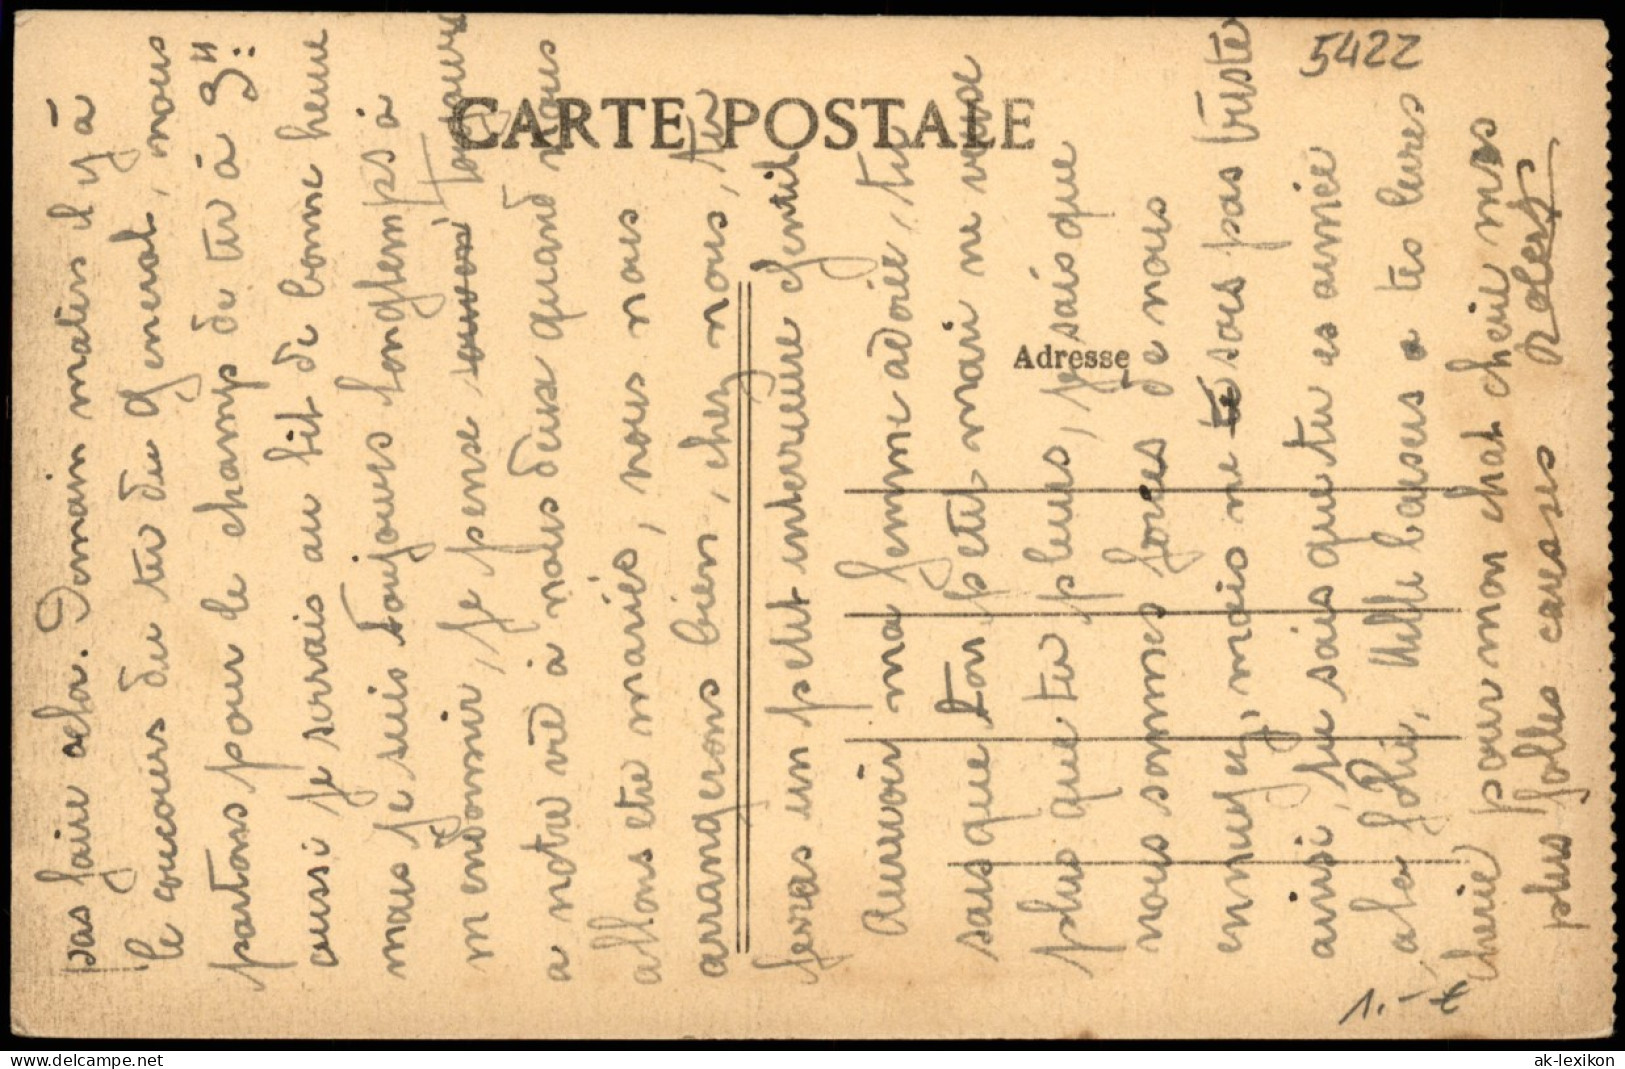 CARTE POSTALE
Adresse
5422
pas faire cela. Demain matin il y à
le concours du tir du General, nous
partons pour le champ de tir à 3"
aussi je serrais au lit de bonne heure
mais je suis toujours longtemps à
m endormir, je pense toujours
a notre vie à nous deux quand nous
allons etre mariés, nous nous
arrangerons bien, chez nous, tu
feras un petit interieure gentil
Aurevoir ma femme adorée, tu
sais que ton petit mari ne veux
plus que tu pleures, je sais que
nous sommes forces de nous
ennuyer, mais ne sois pas triste
ainsi, tu sais que tu es aimée
a la folie, Mille baisers a tes levres
cherie pour mon chat cheri mes
plus folles caresses Robert
1.- €
ak-lexikon.de | akpool.de
ak-lexikon